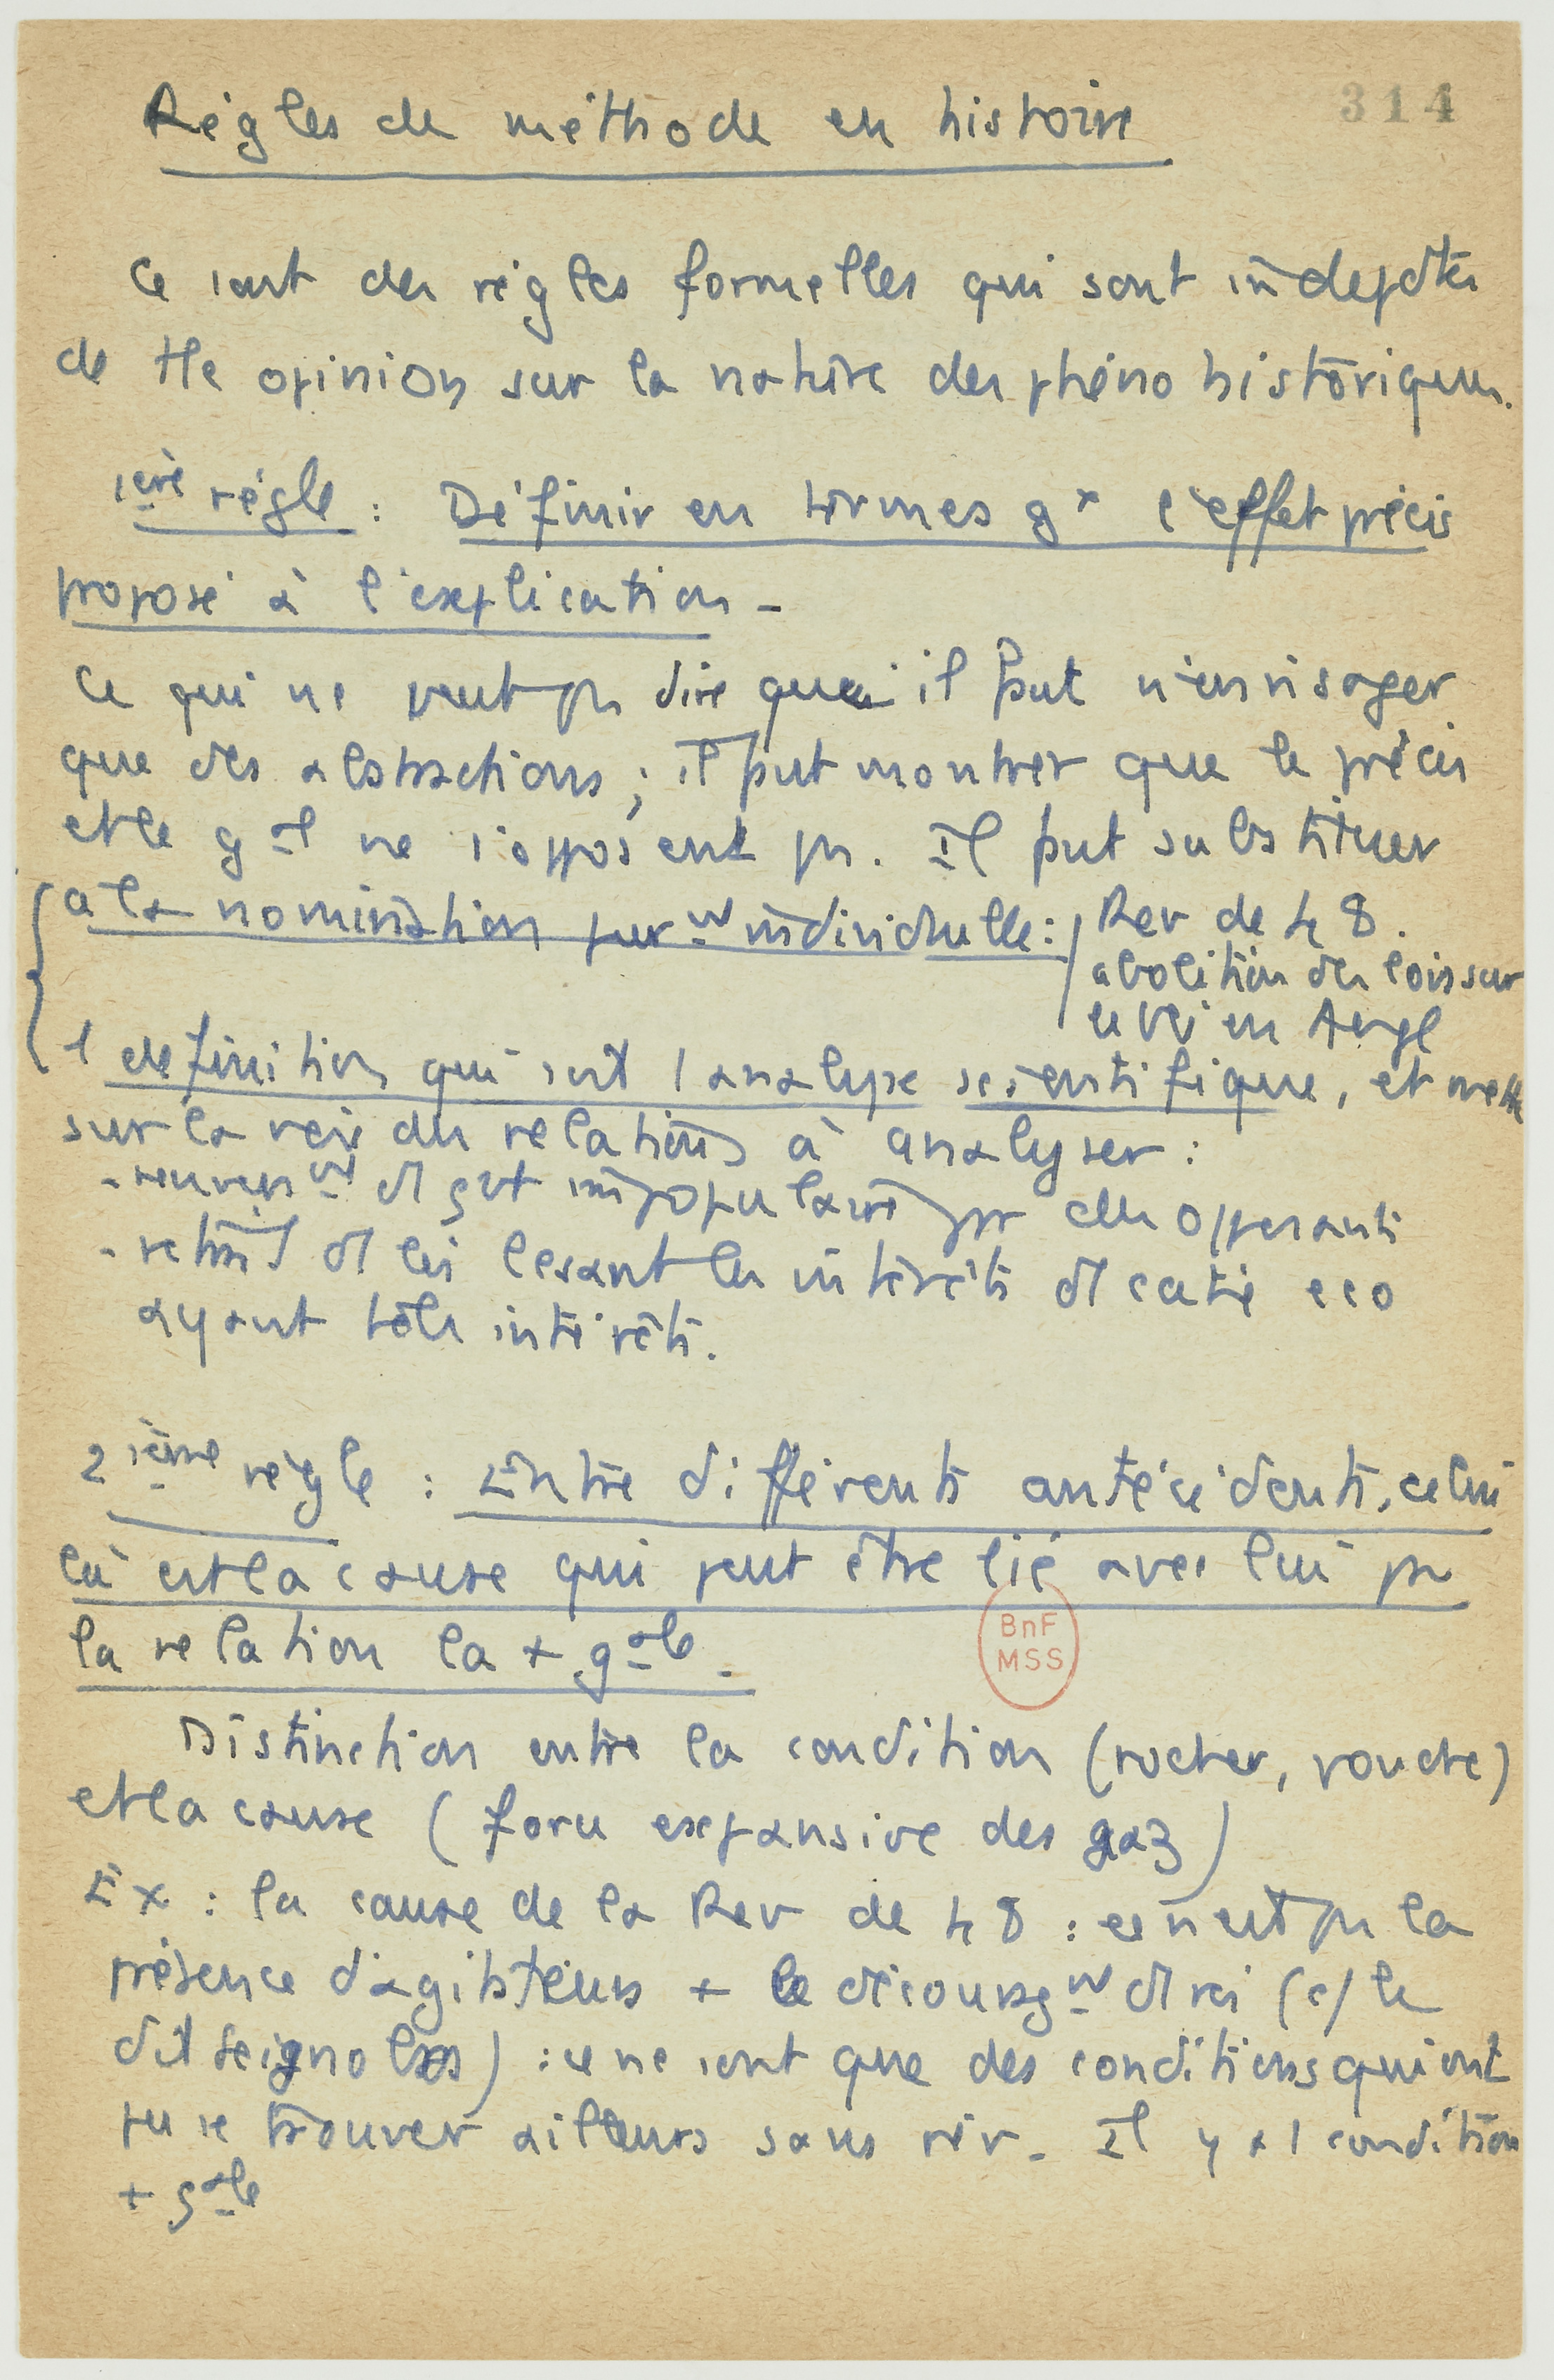 Règles de méthode en histoire
314
Ce sont des règles formelles qui sont indepdtes
de tte opinion sur la nature des phéno historiques.
1ère règle : Définir en termes gx l'effet précis
proposé à l'explication -
Ce qui ne veut ps dire que il faut n'envisager
que des abstractions ; il faut montrer que le précis
et le gal ne s'opposent ps. Il faut substituer
à la nomination purmt individuelle : / Rev de 48.
abolition des lois sur
le blé en Angl
1 définition qui soit 1 analyse scientifique, et mette
sur la voie des relations à analyser :
- renversmt d'1 gvt impopulaire pr des opposants
- retrait d'1 loi lésant les intérêts d'1 catié eco
ayant tels intérêts.
2ième règle : Entre différents antécédents, celui
là est la cause qui peut être lié avec lui pr
la relation la + gale.
Distinction entre la condition (rocher, poudre)
et la cause (force expansive des gaz)
Ex : la cause de la Rev de 48 : ce n'est ps la
présence d'agitateurs + le découragmt d'1 roi (c/ le
dit Seignobos) : ce ne sont que des conditions qui ont
pu se trouver ailleurs sans rév. Il y a 1 condition
+ gale
BnF
MSS